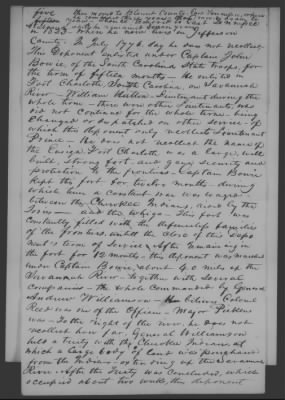 fore this moved to Blount County East Tennessee, where
fifteen
in 1833. When he now lives in Jefferson
County. In July 1776 day he does not recollect.
This Deponent enlisted under Captain John
Bowie, of the South Carolina State troops, for
the term of fifteen months – He entered in
Fort Charlott, South Carolina, on Savannah
River – William Lieutenant during the
whole time – there were other Lieutenants, who
did not continue for the whole time being
changed or detatched on other service – of
which this deponent only recollects Lieutenant
Prince – He does not recollect the name of
the Ensign. Fort Charlott, was a large, well
built, strong fort and gave security and
protection to the frontiers – Captain Bowie
kept the fort for twelve months – during
which time a constant war was waged
between the Cherokee Indians, aided by the
Tories – and the Whigs – This fort was
constantly filled with the defenceless families
of the frontiers, until the close of this depo
nent's term of service. After remaining in
the fort for 12 months – this deponent was marched
under Captain Bowie, about 60 miles up the
Savannah River – together with several
companies – the whole commanded by General
Andrew Williamson – Colonel
Reed was one of the Officers – Major Pickens
was – In the night of the war he does not
recollect how far. General Williamson
held a treaty with the Cherokee Indians, at
which a large body of land was purchased
from the Indians – on the Savannah
River – After the Treaty was concluded, which
occupied about two weeks, this deponent